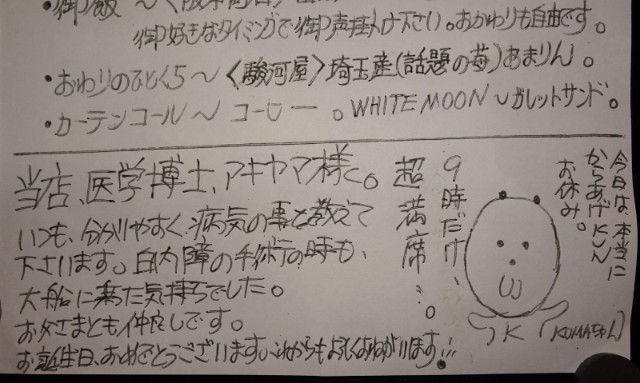 ・御飯 〜
御好きなタイミングで御声掛け下さい。おかわりも自由です。
・おわりのひとくち〜〈駿河屋〉埼玉産(話題の苺)あまりん。
・カーテンコール〜コーヒー。WHITE MOON〜ガレットサンド。
当店、医学博士、アキヤマ様に。
いつも、分かりやすく、病気の事を教えて
下さいます。白内障の手術の時も、
大船に乗た気持ちでした。
お父さまとも仲良しです。
お誕生日、おめでとうございます。これからもよろしくおねがいします!!
9時だけ、
超満席…。
今日は、本当に
からあげKUN
お休み。
K
(KUMAちゃん)